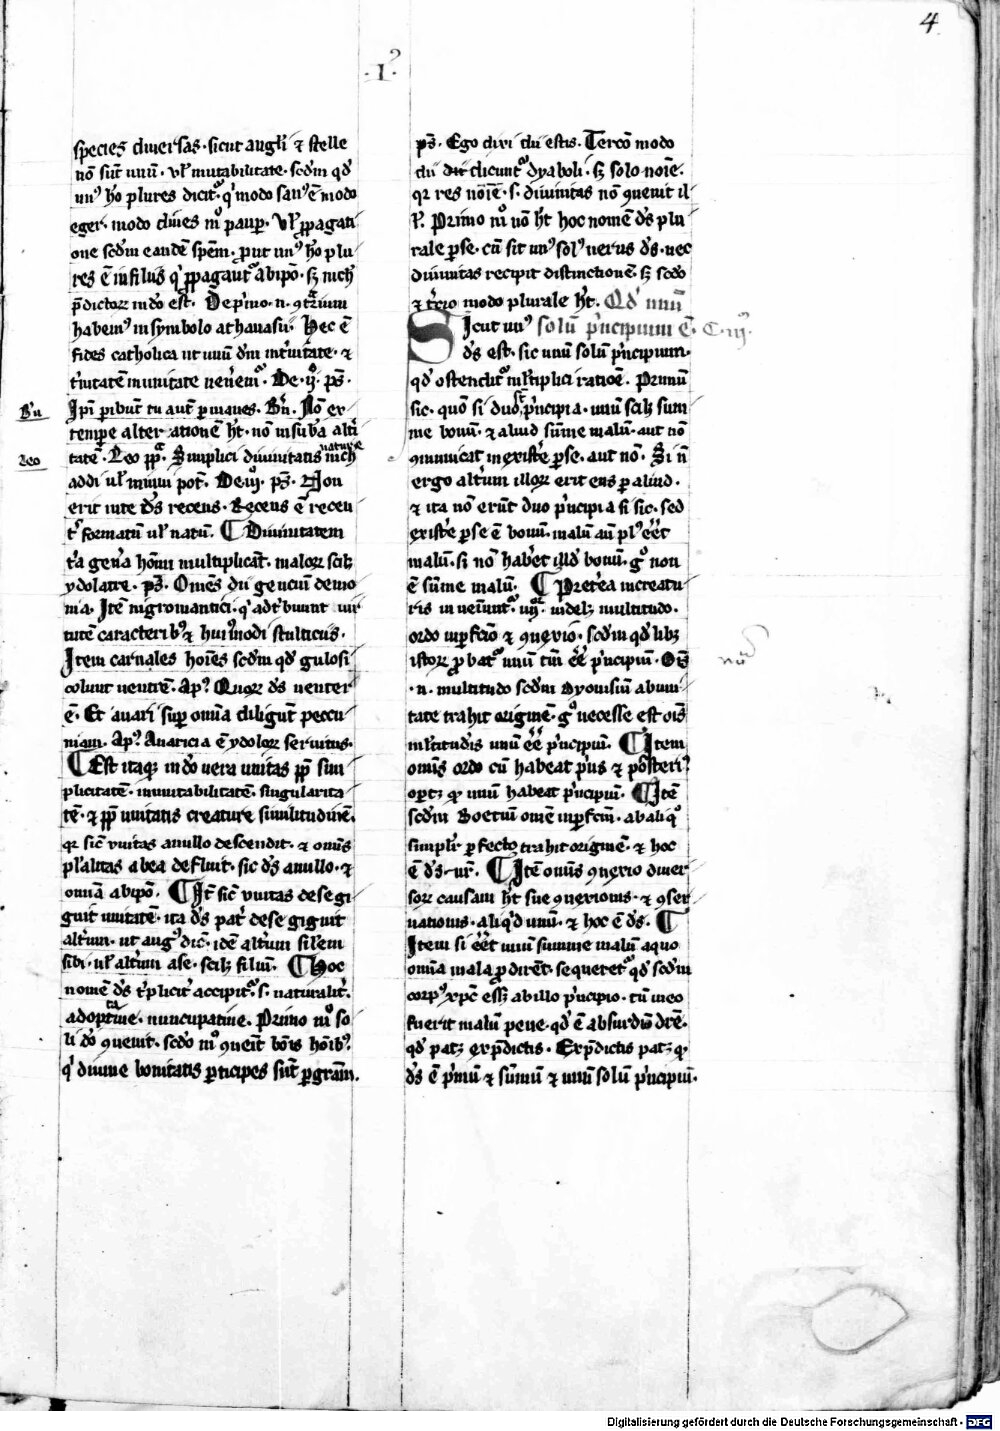 4
.I.
species diuersas. sicut angl'i ⁊ stelle
nō sūt unū. ul' mutabilitate. scdm qd'
un' hō plures dicit'. q' modo san' ē modo
eger. modo diues m° paup. Ul' ppagati
one scdm eandē spēm. put un' hō plu
res ē in filijs q' ppagant' ab ipō. s; nich'
p̄dictorꝝ in dō est. De p'mo. n. 9t̄rium
habem' in symbolo athanasii. Hec ē
fides catholica ut unū dm in t'nitate. ⁊
t'nitatē in unitate ueñem'. De. ij°. ps̄.
Ipi pibūt tu aut pmanes. B'n. Nō ex
B'n
tempe alterationē h't. nō in sub'a alt'i
tatē. Leo pp. Simplici diuinitatis nature nich'
Leo
addi ul' minui pot̄. De. iij°. ps̄. Non
erit in te d's recens. Recens ē recen
t' formatū ul' natū. ¶ Diuinitatem
t'a gen'a homī multiplicāt. malorꝝ scil;
ydolatre. ps̄. Omēs dii genciū demo
nia. Itē nigromantici. q' adt'buunt uir
tutē caracterib; ⁊ hui'modi stulticiis.
Item carnales hoīes scdm qd' gulosi
colunt uentrē. Ap'. Quorꝝ d's uenter
ē. Et auari sup omīa diligūt peccu
niam. Ap'. Auaricia ē ydolorꝝ seruitus.
¶ Est itaq; in dō uera unitas pp sim
plicitatē. inmutabilitatē. singularita
tē. ⁊ pp unitatis creature similitudinē.
qꝛ sic̄ unitas a nullo descendit. ⁊ omīs
pl'alitas ab ea defluit. sic d's a nullo. ⁊
omīa ab ipō. ¶ It̄ sic̄ unitas de se gi
gnit unitatē. ita d's pat' de se gignit
alt'um. ut aug' dic̄. idē alt'um sil'em
sibi. ul' alt'um a se. scil; filiū. ¶ Hoc
nomē d's t'plicit' accipit'. s. naturalit'.
adoptiue. nuncupatiue. Primo m° so
li dō 9uenit. scdo m° 9uēit bōis hoīb'.
q' diuine bonitatis pticipes sūt p grām.
ps̄. Ego dixi dii estis. Tercō modo
dii dicunt' dyaboli. s; solo noīe.
qꝛ res noīē. s. diuinitas nō 9uenit il
l'. Primo m° uō h't hoc nomē d's plu
rale p se. cū sit un' sol' uerus d's. nec
diuinitas recipit distinctionē. s; scdo
⁊ t'cio modo plurale h't. Qd' unū
Sicut un' solū p'ncipium ē. C. iij°.
d's est. sic unū solū p'ncipium.
qd' ostendit' ml'tiplici ratioē. Primū
sic. quō si duo s̄t p'ncipia. unū scil; sum
me bonū. ⁊ aliud sūme malū. aut nō
9municāt in exist'e p se. aut nō. Si n̄
ergo alt'um illorꝝ erit ens p aliud.
⁊ ita nō erūt duo p'ncipia si sic. sed
exist'e p se ē bonū. malū aū pl' eēt
malū. si nō hab'et illd' bonū. g° non
ē sūme malū. ¶ Pret'ea in creatu
ris inueniunt'. iiij°r. uidel; multitudo.
ordo inpfcio ⁊ 9nexio. scdm qd' lib;
istorꝝ pbat' unū tm̄ eē p'ncipiū. Oīs
.n. multitudo scdm dyonisiū ab uni
tate trahit originē. g° necesse est oīs
ml'titudīs unū eē p'ncipiū. ¶ Item
omīs ordo cū habeat p'us ⁊ posteri'
oport; q' unū habeat p'ncipiū. ¶ Itē
scdm Boetiū omē inpfcm̄. ab aliq°
simplr' pfecto trahit originē. ⁊ hoc
ē d's nr̄. ¶ Itē omīs 9nexio diuer
sorꝝ causam h't sue 9nexionis. ⁊ 9ser
uationis. aliq'd unū. ⁊ hoc ē d's. ¶
Item si eēt unū summe malū a quo
omīa mala pdirēt. sequeret' qd' scdm
corp' xpc̄ ess; ab illo p'ncipio. tū in eo
fuerit malū pene. qd' ē absurdū dicē.
qd' pat; ex p̄dictis. Ex p̄dictis pat; q'
d's ē p'mū ⁊ sūmū ⁊ unū solū p'ncipiū.
Digitalisierung gefördert durch die Deutsche Forschungsgemeinschaft - DFG